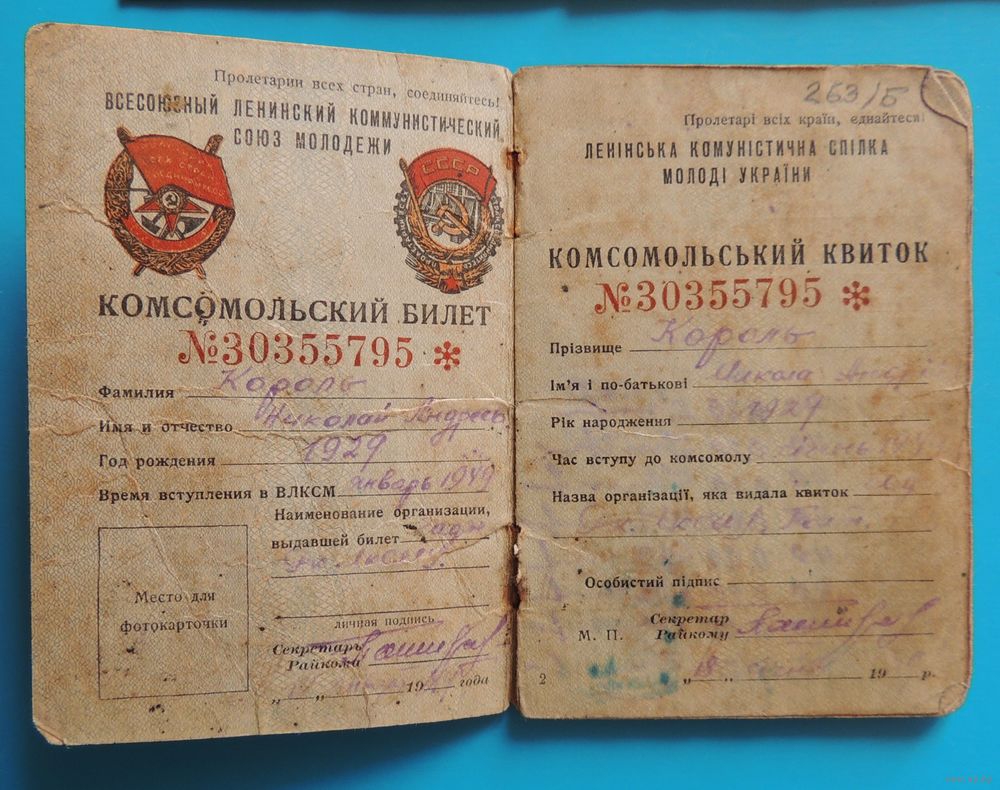 Пролетарии всех стран, соединяйтесь!
ВСЕСОЮЗНЫЙ ЛЕНИНСКИЙ КОММУНИСТИЧЕСКИЙ
СОЮЗ МОЛОДЕЖИ
СССР
КОМСОМОЛЬСКИЙ БИЛЕТ
№30355795 *
Фамилия Король
Имя и отчество Николай Андреев.
Год рождения 1929
Время вступления в ВЛКСМ январь 1949
Наименование организации,
выдавшей билет
Место для
фотокарточки
личная подпись
Секретарь
Райкома
„ „ 19 года
263/Б
Пролетарі всіх країн, єднайтеся!
ЛЕНІНСЬКА КОМУНІСТИЧНА СПІЛКА
МОЛОДІ УКРАЇНИ
КОМСОМОЛЬСЬКИЙ КВИТОК
№30355795 *
Прізвище Король
Ім'я і по-батькові Микола
Рік народження 1929
Час вступу до комсомолу
Назва організації, яка видала квиток
Особистий підпис
Секретар
М. П. Райкому
2 „ 18 „ 19 р.